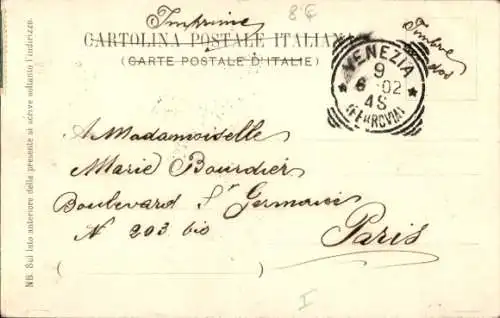 Imprimé
8€
CARTOLINA POSTALE ITALIANA
(CARTE POSTALE D'ITALIE)
Timbre
au dos
VENEZIA
9
6 02
4S
(FERROVIA)
A Mademoiselle
Marie Bourdier
Boulevard St Germain
N 203 bis
Paris
NB. Sul lato anteriore della presente si scrive soltanto l'indirizzo.
I